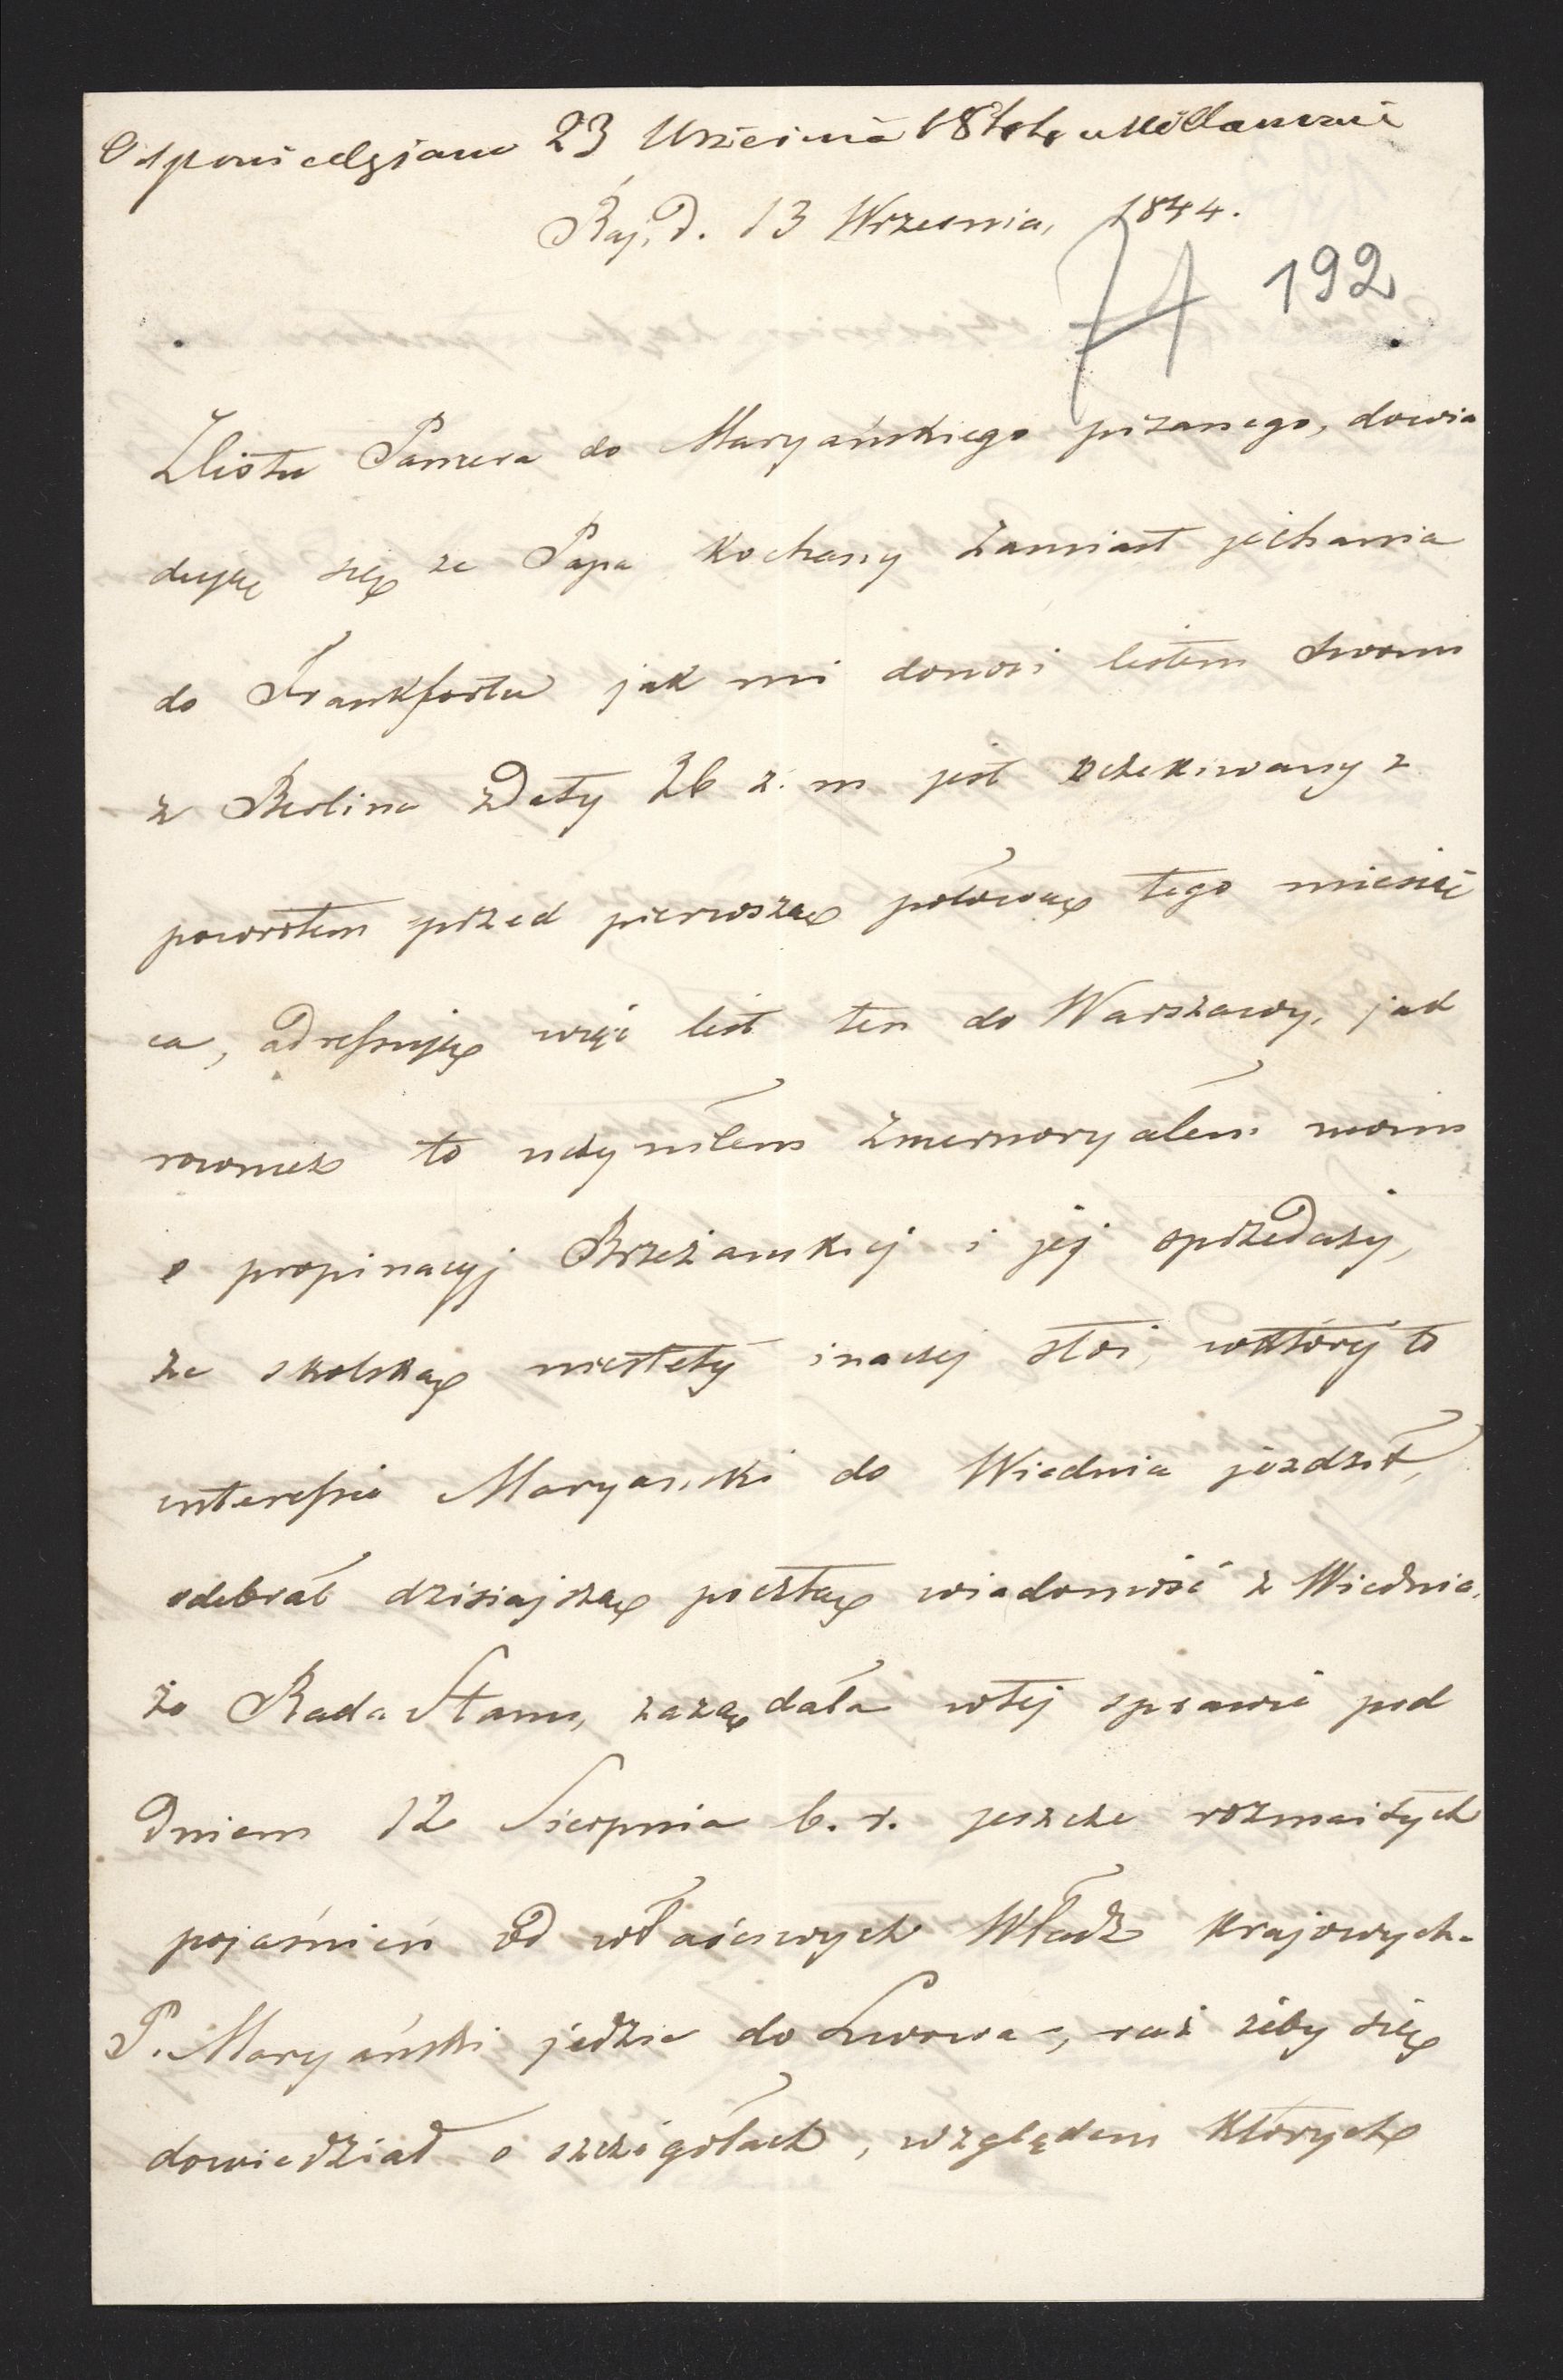 Odpowiedziano 23 Września 1844 w Willanowie
Raj, d. 13 Wrzesnia, 1844.
74 192
Zlistu Panzera do Maryańskiego pizanego, dowia
duję się ze Papa Kochany zamiast jechania
do Frankfortu jak mi donosi listem swoim
z Berlina zDaty 26 z. m jest oczekiwany z
powrotem przed pierwszą połową tego miesią
ca, adressuję więc list ten do Warszawy, jak
rownież to uczyniłem zmemoryałem moim
o propinacyj Brzeżanskiej i jej sprzedaży,
ze skolską niestety inaczej stoi, wktórej to
interessie Maryanski do Wiednia jezdził,
odebrał dzisiajszą pocztą wiadomość z Wiednia,
że Rada Stanu, zarządała wtej sprawie pod
Dniem 12 Sierpnia b. r. jeszcze rozmaitych
pojaśnień od właściwych Władz Krajowych.
P. Maryański jedzie do Lwowa, raz żeby się
dowiedział o szczegółach, względem których